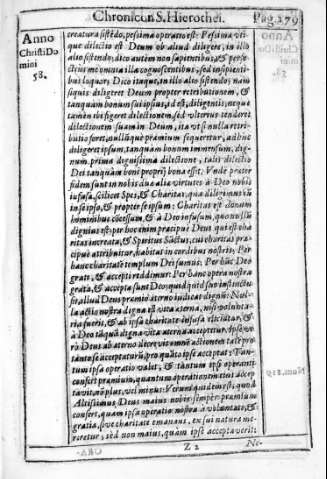 Chronicon S. Hierothei. Pag. 279
Anno
Christi Do
mini
58.
creatura sistēdo, pessima operatio est: Pessima, vti-
que dilectio est Deum ob aliud diligere, in illo
alio sistendo; dico autem non sapientibus, & perfe-
ctius me omnia illa cognoscentibus, sed insipienti-
bus loquor. Dico itaque, in illo alio sistendo; nam
siquis diligeret Deum propter retributionem, &
tanquàm bonum sui ipsius, id est, diligentis, neque
tamen ibi figeret dilectionem, sed vlterius tenderet
dilectionem suam in Deum, ita vt si nulla retri-
butio foret, nullūque præmium sequeretur, adhuc
diligeret ipsum, tanquàm bonum immensum, dig-
num prima dignissima dilectione, talis dilectio
Dei tanquàm boni proprij bona esset. Vnde præter
fidem sunt in nobis duæ aliæ virtutes à Deo nobis
infusæ, scilicet Spes, & Charitas, qua diligimus
in se ipso, & propter se ipsum: Charitas est donum
hominibus concessum, & à Deo infusum, quo nullū
dignius est: per hoc enim præcipuè Deus qui est cha-
ritas increata, & Spiritus Sāctus, cui charitas præ-
cipuè attribuitur, habitat in cordibus nostris; Per
hanc charitatē templum Dei sumus; Per hāc Deo
grati, & accepti reddimur: Per hanc opera nostra
grata, & accepta sunt Deo; quidquid sun
fit, aliud Deus præmio æterno iudicat dignū: Nul-
la actio nostra digna est vita æterna, nisi volunta-
ria fuerit, & ab ipsa charitate infusa eliciatur, &
à Deo tāquā digna vita æterna acceptetur, ipse ve-
rò Deus ab æterno decreuit omnē actionem tale pro
tanto se acceptaturū, pro quāto ipse acceptat: Tan-
tum ipsa operatio valet, & tantum ipsi operanti
confert præmium, quantum operationem eius accep-
tauit, aut plus, vel minus: Verum quidem est, quod
Altissimus Deus maius nobis semper præmium
confert, quam ipsa operatio nostra à voluntate, &
gratia, siue charitate emanans, ex sui natura me-
reretur; sed non maius, quàm ipse acceptauerit:
Z 2 Ne-